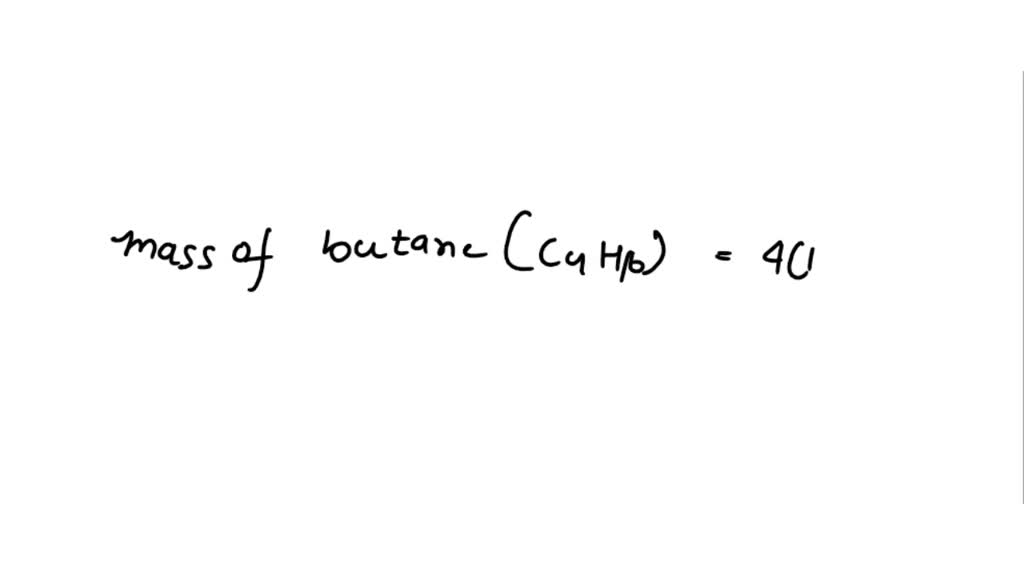 mass of butane (C4H10) = 4